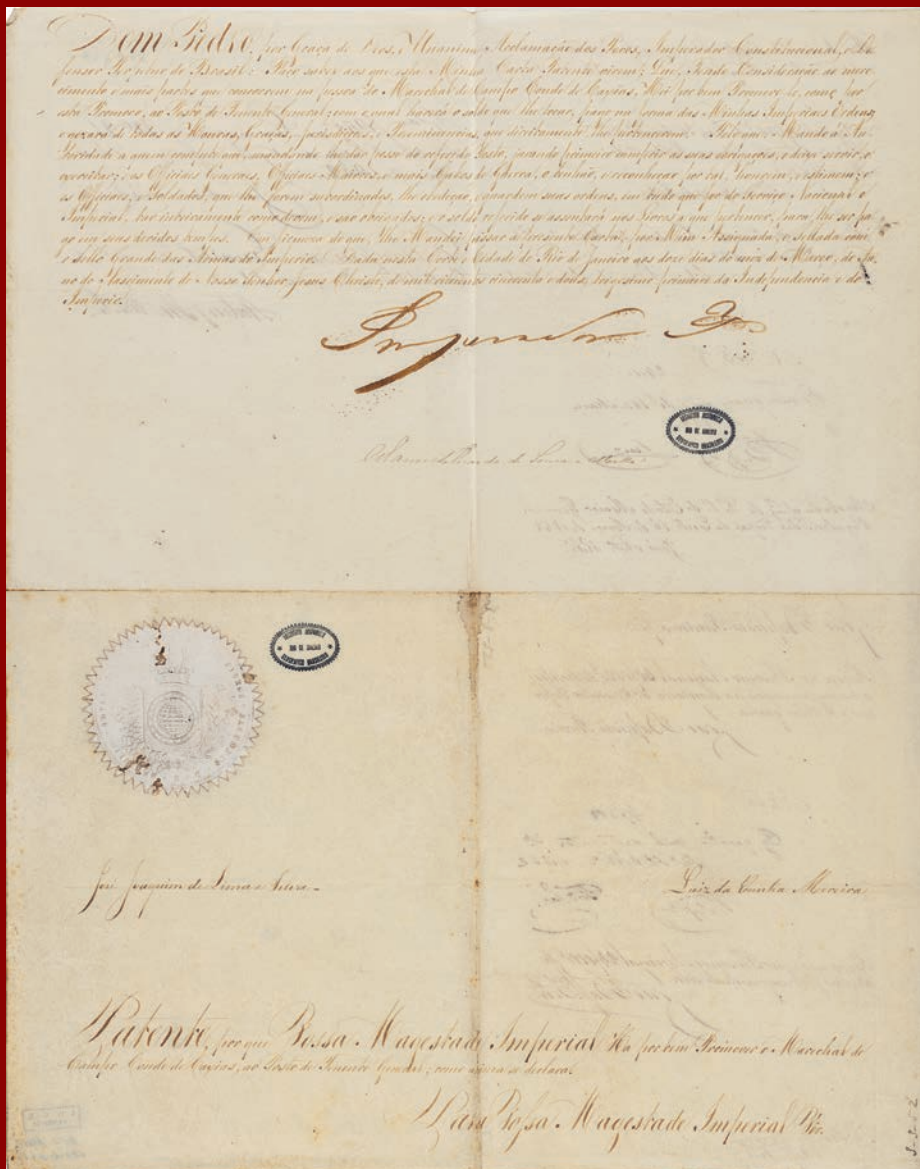 Dom Pedro, por Graça de Deos, e Unanime Acclamação dos Povos, Imperador Constitucional, e De-
fensor Perpetuo do Brasil: Faço saber aos que esta Minha Carta Patente virem; Que, Tendo Consideração ao mere-
cimento e mais partes que concorrem na pessoa do Marechal de Campo Conde de Caxias, Hei por bem Promove-lo, como por
esta Promovo, ao Posto de Tenente General; com o qual haverá o soldo que lhe tocar, pago na forma das Minhas Imperiaes Ordens;
e gozará de todas as Honras, Graças, e Preeminencias, que direitamente lhe pertencerem. Mando á Au-
thoridade a quem competir que, mandando-lhe dar posse do referido Posto, jurando primeiro cumprir as suas obrigações, o deixe servir, e
exercitar; e aos Officiaes Generaes, Officiaes Maiores, e mais Cabos de Guerra, o tenhão, e reconheção por tal, honrem, e estimem; e
os Officiaes, e Soldados, que lhe forem subordinados, lhe obedeção, e guardem suas ordens, em tudo que for do Serviço Nacional e
Imperial, tão inteiramente como devem, e são obrigados; e o soldo referido se assentará nos Livros a que pertencer, para lhe ser pa-
go em seus devidos tempos. Em firmeza do que, lhe Mandei passar a presente Carta, por Mim Assignada, e sellada com
o sello Grande das Armas do Imperio. Dada nesta Corte e Cidade do Rio de Janeiro aos doze dias do mez de Março, do An-
no do Nascimento de Nosso Senhor Jesus Christo, de mil oitocentos cincoenta e dous, trigesimo primeiro da Independencia e do
Imperio.
Imperador
Manoel de Souza e Mello
RIO DE JANEIRO
RIO DE JANEIRO
José Joaquim de Lima e Silva
Luiz da Cunha Moreira
Patente, por que Vossa Magestade Imperial Ha por bem Promover o Marechal de
Campo Conde de Caxias, ao Posto de Tenente General; como acima se declara.
Para Vossa Magestade Imperial Ver.